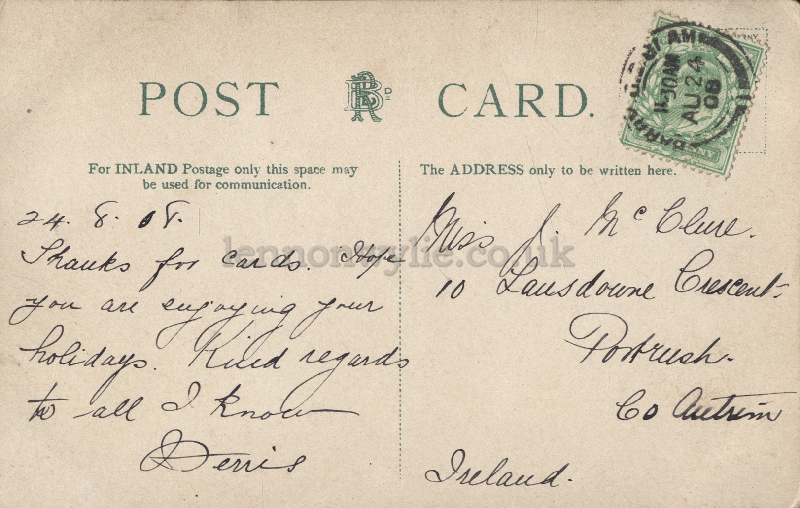 POST CARD.
For INLAND Postage only this space may
be used for communication.
The ADDRESS only to be written here.
24. 8. 08.
Thanks for cards. Hope
you are enjoying your
holidays. Kind regards
to all I know
Derris
Miss J. McClure.
10 Lansdowne Crescent
Portrush.
Co Antrim
Ireland.
11.30AM
AU 24
08
lennonwylie.co.uk